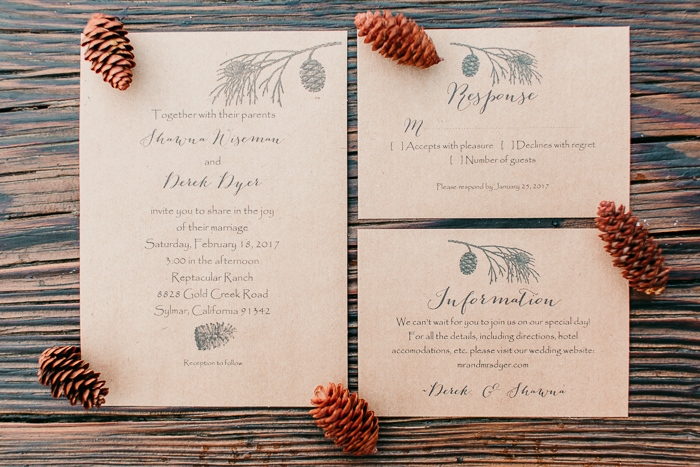 Together with their parents
Shawna Wiseman
and
Derek Dyer
invite you to share in the joy
of their marriage
Saturday, February 18, 2017
3:00 in the afternoon
Reptacular Ranch
8828 Gold Creek Road
Sylmar, California 91342
Reception to follow
Response
M
[ ] Accepts with pleasure [ ] Declines with regret
[ ] Number of guests
Please respond by January 25, 2017
Information
We can't wait for you to join us on our special day!
For all the details, including directions, hotel
accomodations, etc. please visit our wedding website:
mrandmrsdyer.com
-Derek & Shawna